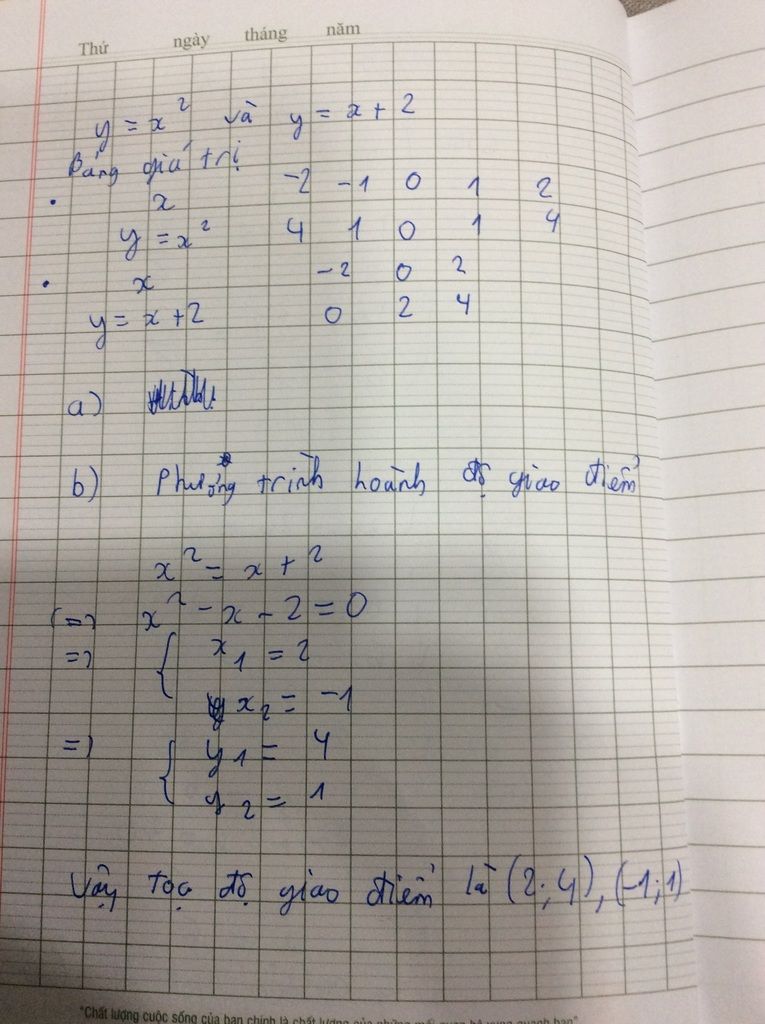 Thứ ngày tháng năm
y = x² và y = x + 2
Bảng giá trị
• x -2 -1 0 1 2
y = x² 4 1 0 1 4
• x -2 0 2
y = x + 2 0 2 4
a)
b) Phương trình hoành độ giao điểm
x² = x + 2
(=) x² - x - 2 = 0
=) { x₁ = 2
x₂ = -1
=) { y₁ = 4
y₂ = 1
Vậy tọa độ giao điểm là (2;4), (-1;1)
"Chất lượng cuộc sống của bạn chính là chất lượng của những mối quan hệ xung quanh bạn"